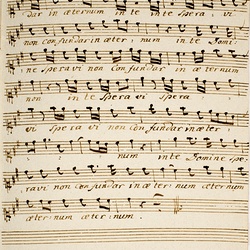 dar in æternum in te in te Spera vi
non Confundar in æter num in te Domi
ne speravi non Confundar in æternum
non in te Spera vi Spera
vi Spera vi non Confundar in æter
num in te Domine spe
ravi non Confundar in æter num æternum
æter num æternum.